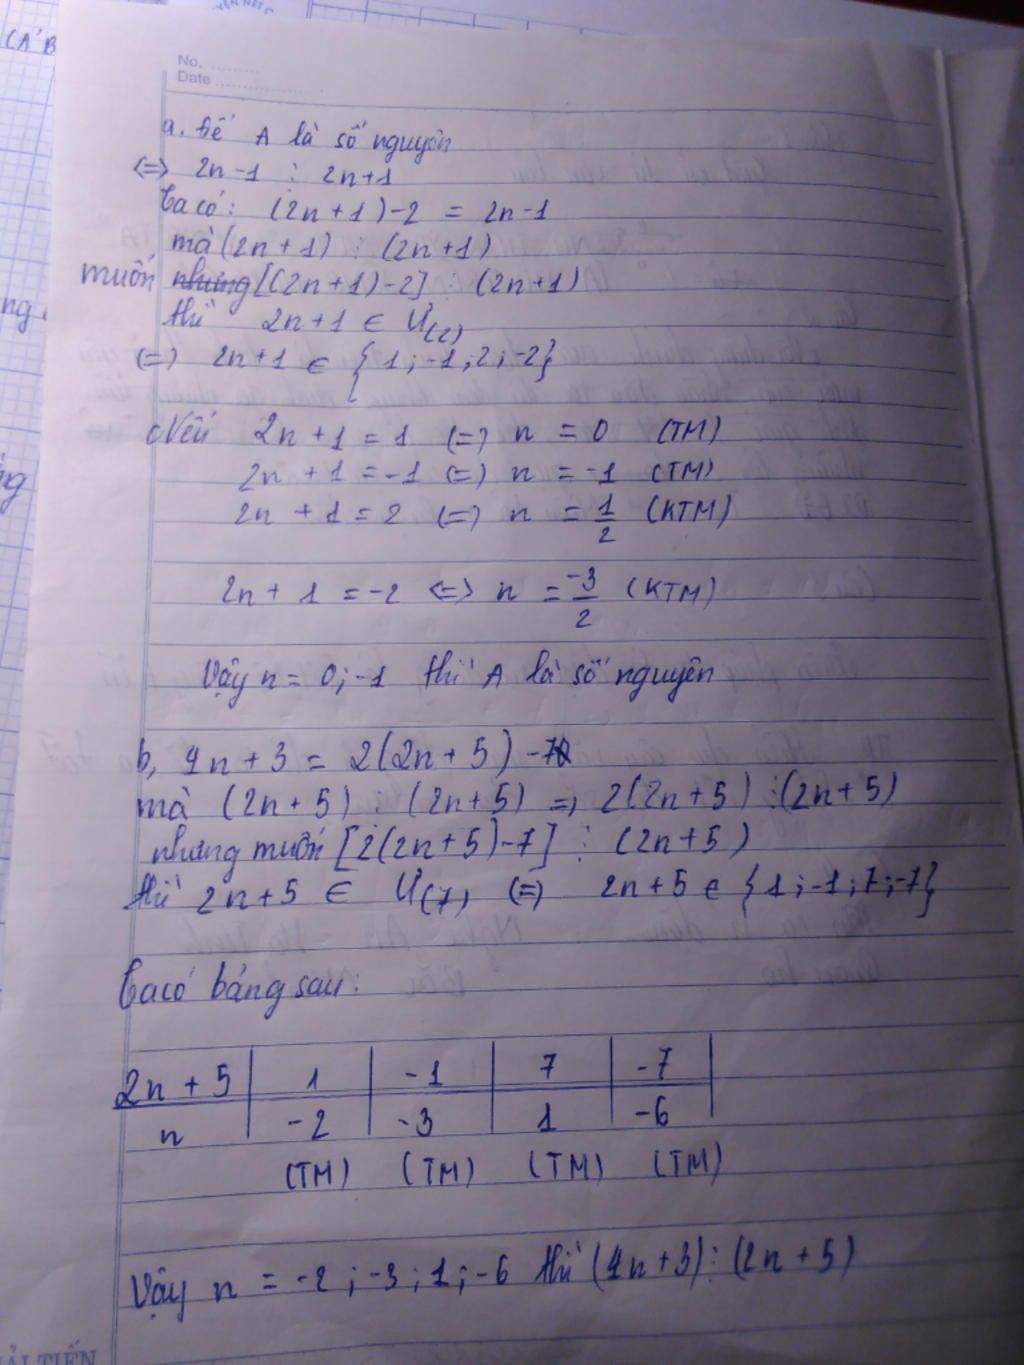 No. .........
Date ...................
a. Để A là số nguyên
(=) 2n-1 ⋮ 2n+1
Ta có: (2n+1)-2 = 2n-1
mà (2n+1) ⋮ (2n+1)
muốn nhưng [(2n+1)-2] ⋮ (2n+1)
thì 2n+1 ∈ Ư(2)
(=) 2n+1 ∈ {1;-1;2;-2}
Nếu 2n+1=1 (=) n = 0 (TM)
2n+1=-1 (=) n = -1 (TM)
2n+1=2 (=) n = 1/2 (KTM)
2n+1=-2 (=) n = -3/2 (KTM)
Vậy n = 0;-1 thì A là số nguyên
b, 4n+3 = 2(2n+5)-7
mà (2n+5) ⋮ (2n+5) => 2(2n+5) ⋮ (2n+5)
nhưng muốn [2(2n+5)-7] ⋮ (2n+5)
thì 2n+5 ∈ Ư(7) (=) 2n+5 ∈ {1;-1;7;-7}
Ta có bảng sau:
2n+5 1 -1 7 -7
n -2 -3 1 -6
(TM) (TM) (TM) (TM)
Vậy n = -2;-3;1;-6 thì (4n+3) ⋮ (2n+5)
ẢI TIẾN